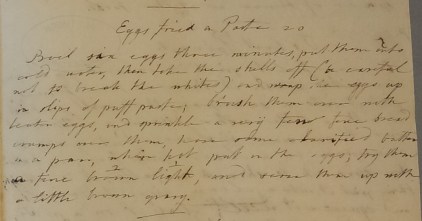 Eggs fried a Pate 20
Boil six eggs three minutes, put them into
cold water, then take the shells off (be careful
not to break the whites) and wrap the eggs up
in slips of puff paste; brush them over with
beaten egg, and sprinkle a very few fine bread
crumps over them, have some clarified butter
in a pan, when hot put in the eggs; fry them
a fine brown light, and serve them up with
a little brown gravy.